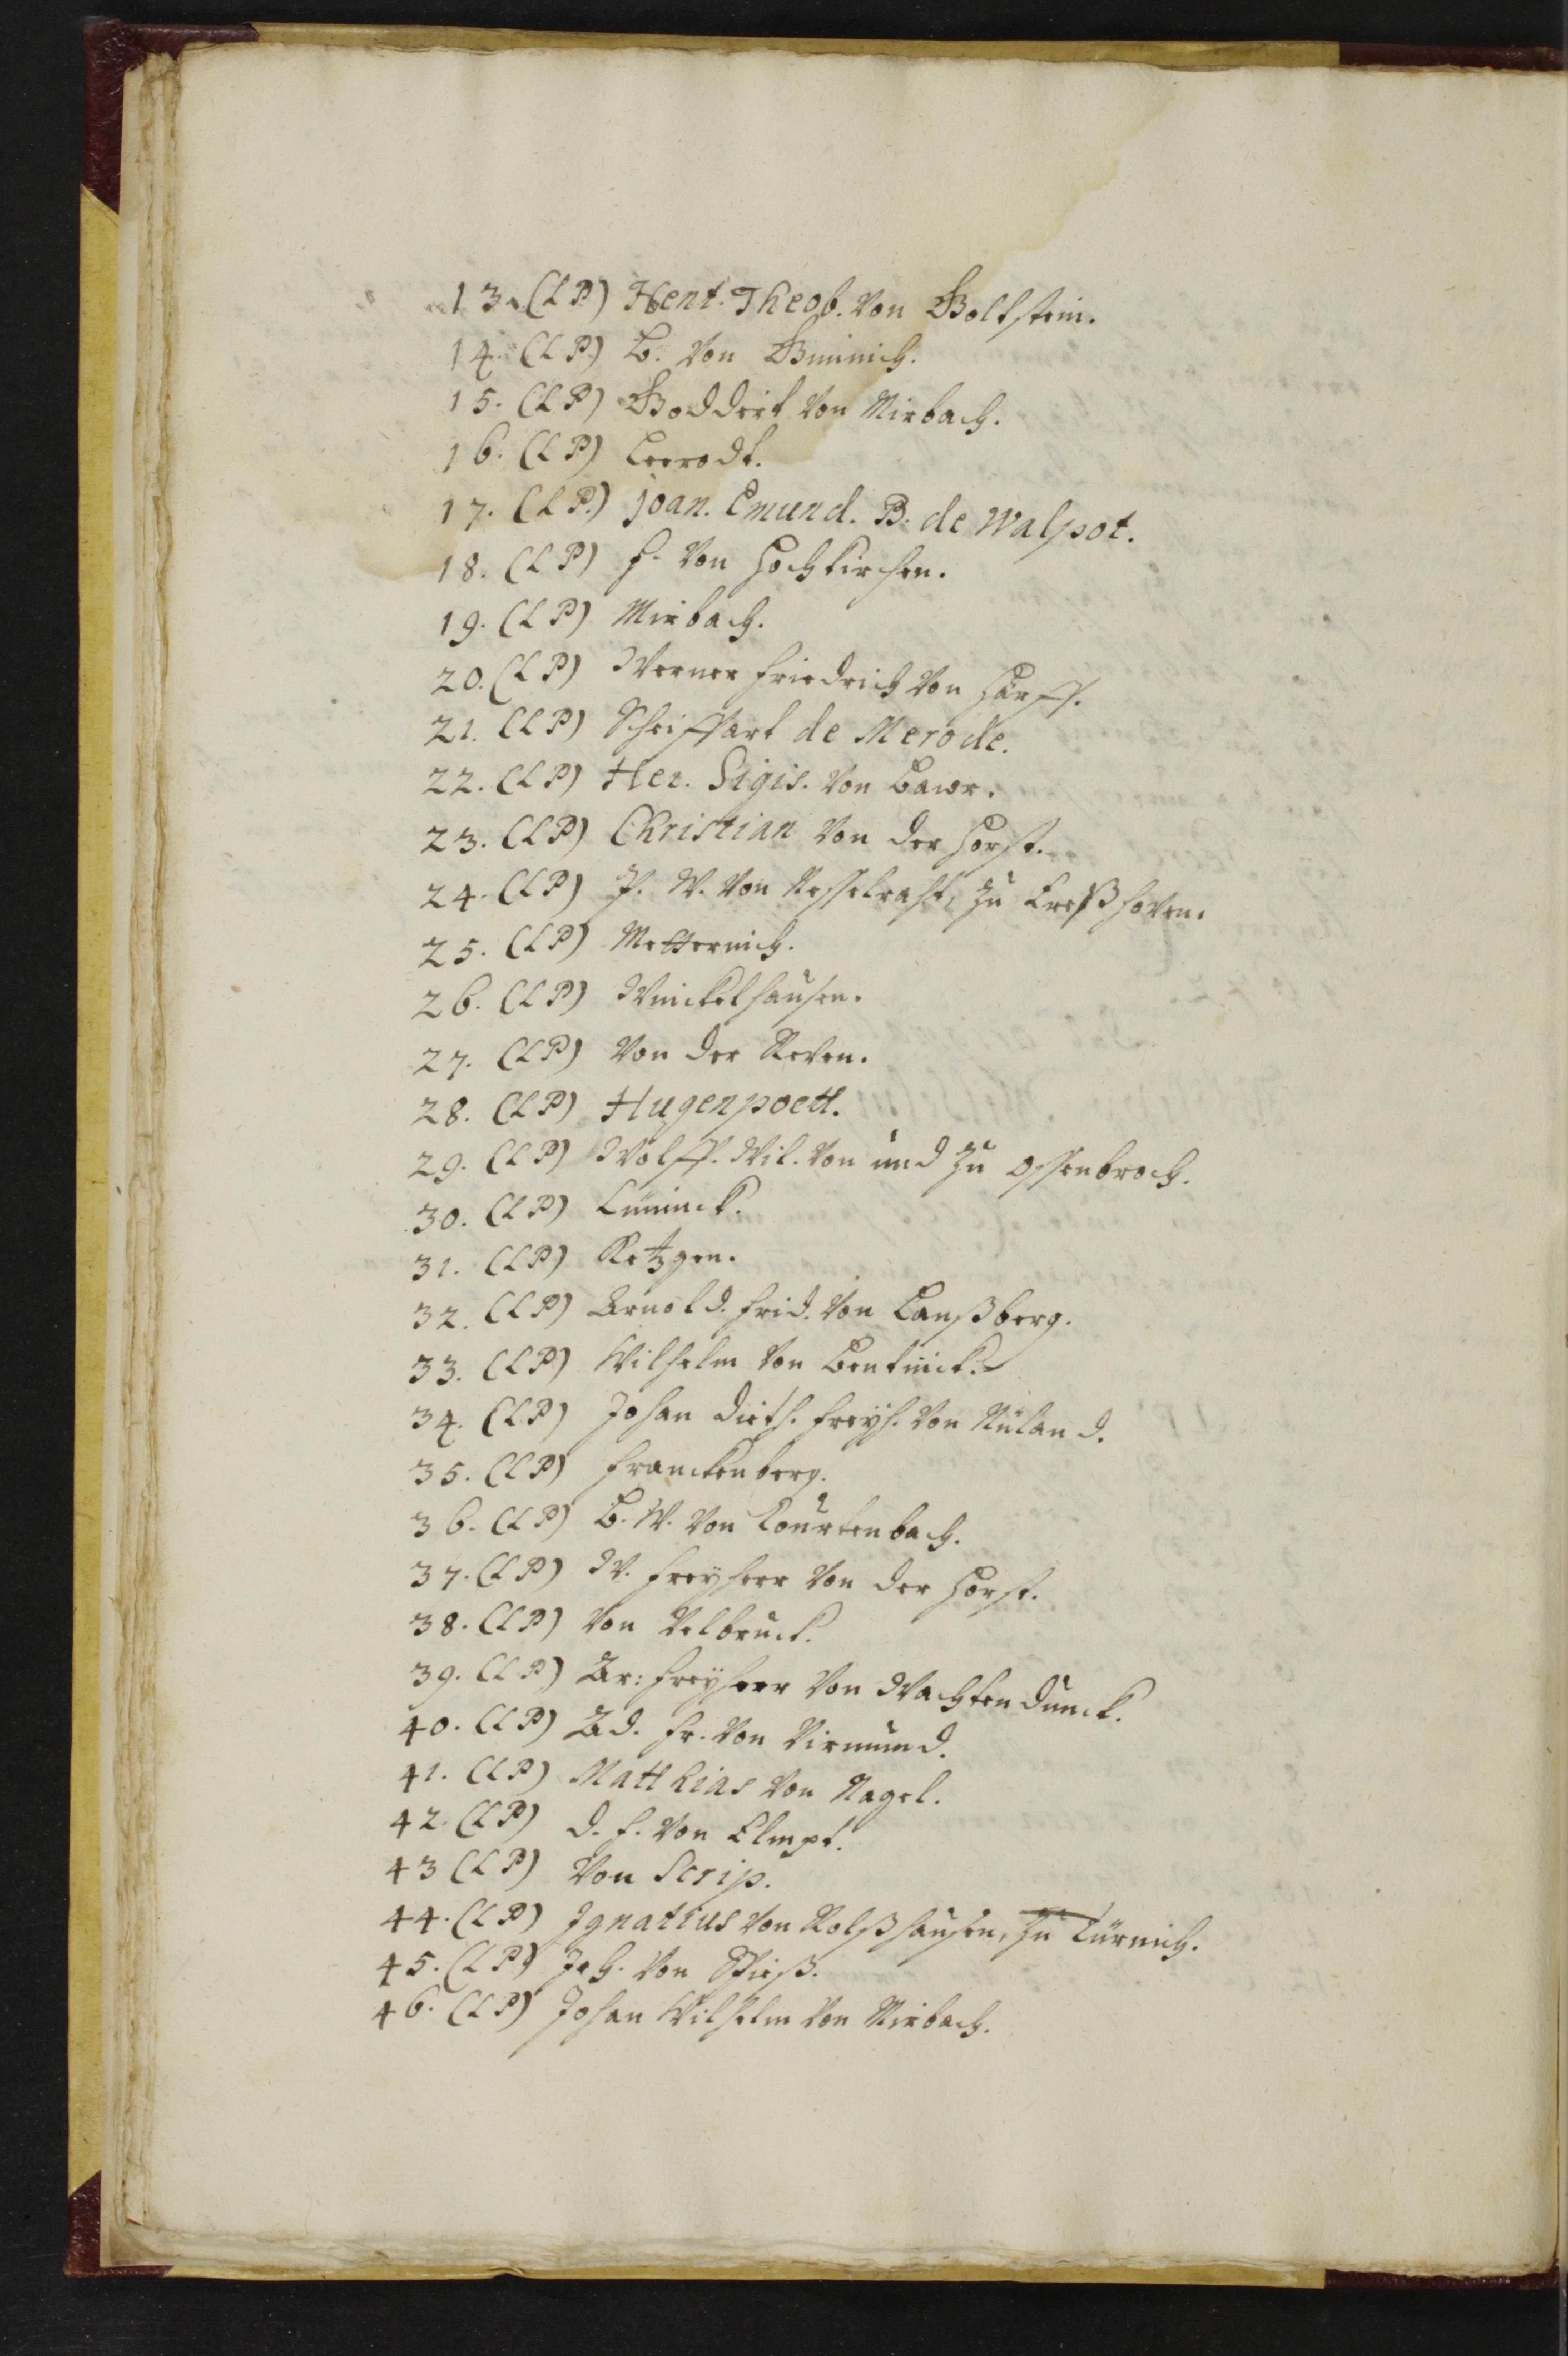 13. (LP) Hent. Theob. von Goltstein.
14. (LP) B. von Gimnich.
15. (LP) Goddert von Mirbach.
16. (LP) Leerodt.
17. (LP.) Joan. Emund. B. de Walpot.
18. (LP) f. von Hochkirchen.
19. (LP) Mirbach.
20. (LP) Werner friedrich von Harff.
21. (LP) Scheiffart de Merode.
22. (LP) Her. Sigis. von Bawr.
23. (LP) Christian von der Horst.
24. (LP) P. W. von Nesselraht, zu Ereßhoven.
25. (LP) Metternich.
26. (LP) Winckelhausen.
27. (LP) von der Reven.
28. (LP) Hugenpoett.
29. (LP) Wolff. Wil. von und zu Ossenbroch.
30. (LP) Lüninck.
31. (LP) Retzgen.
32. (LP) Arnold. frid. von Lanßberg.
33. (LP) Wilhelm von Bentinck.
34. (LP) Johan dieth. freyh. von Nüland.
35. (LP) franckenberg.
36. (LP) B. W. von Courtenbach.
37. (LP) W. freyherr von der Horst.
38. (LP) von Velbruck.
39. (LP) Ar: freyherr von Wachtendunck.
40. (LP) Ad. fr. von Virmund.
41. (LP) Matthias von Nagel.
42. (LP) d. f. von Elmpt.
43 (LP) von Scrip.
44. (LP) Ignatius von Rolßhausen, zu Türnich.
45. (LP) Joh. von Spieß.
46. (LP) Johan Wilhelm von Mirbach.